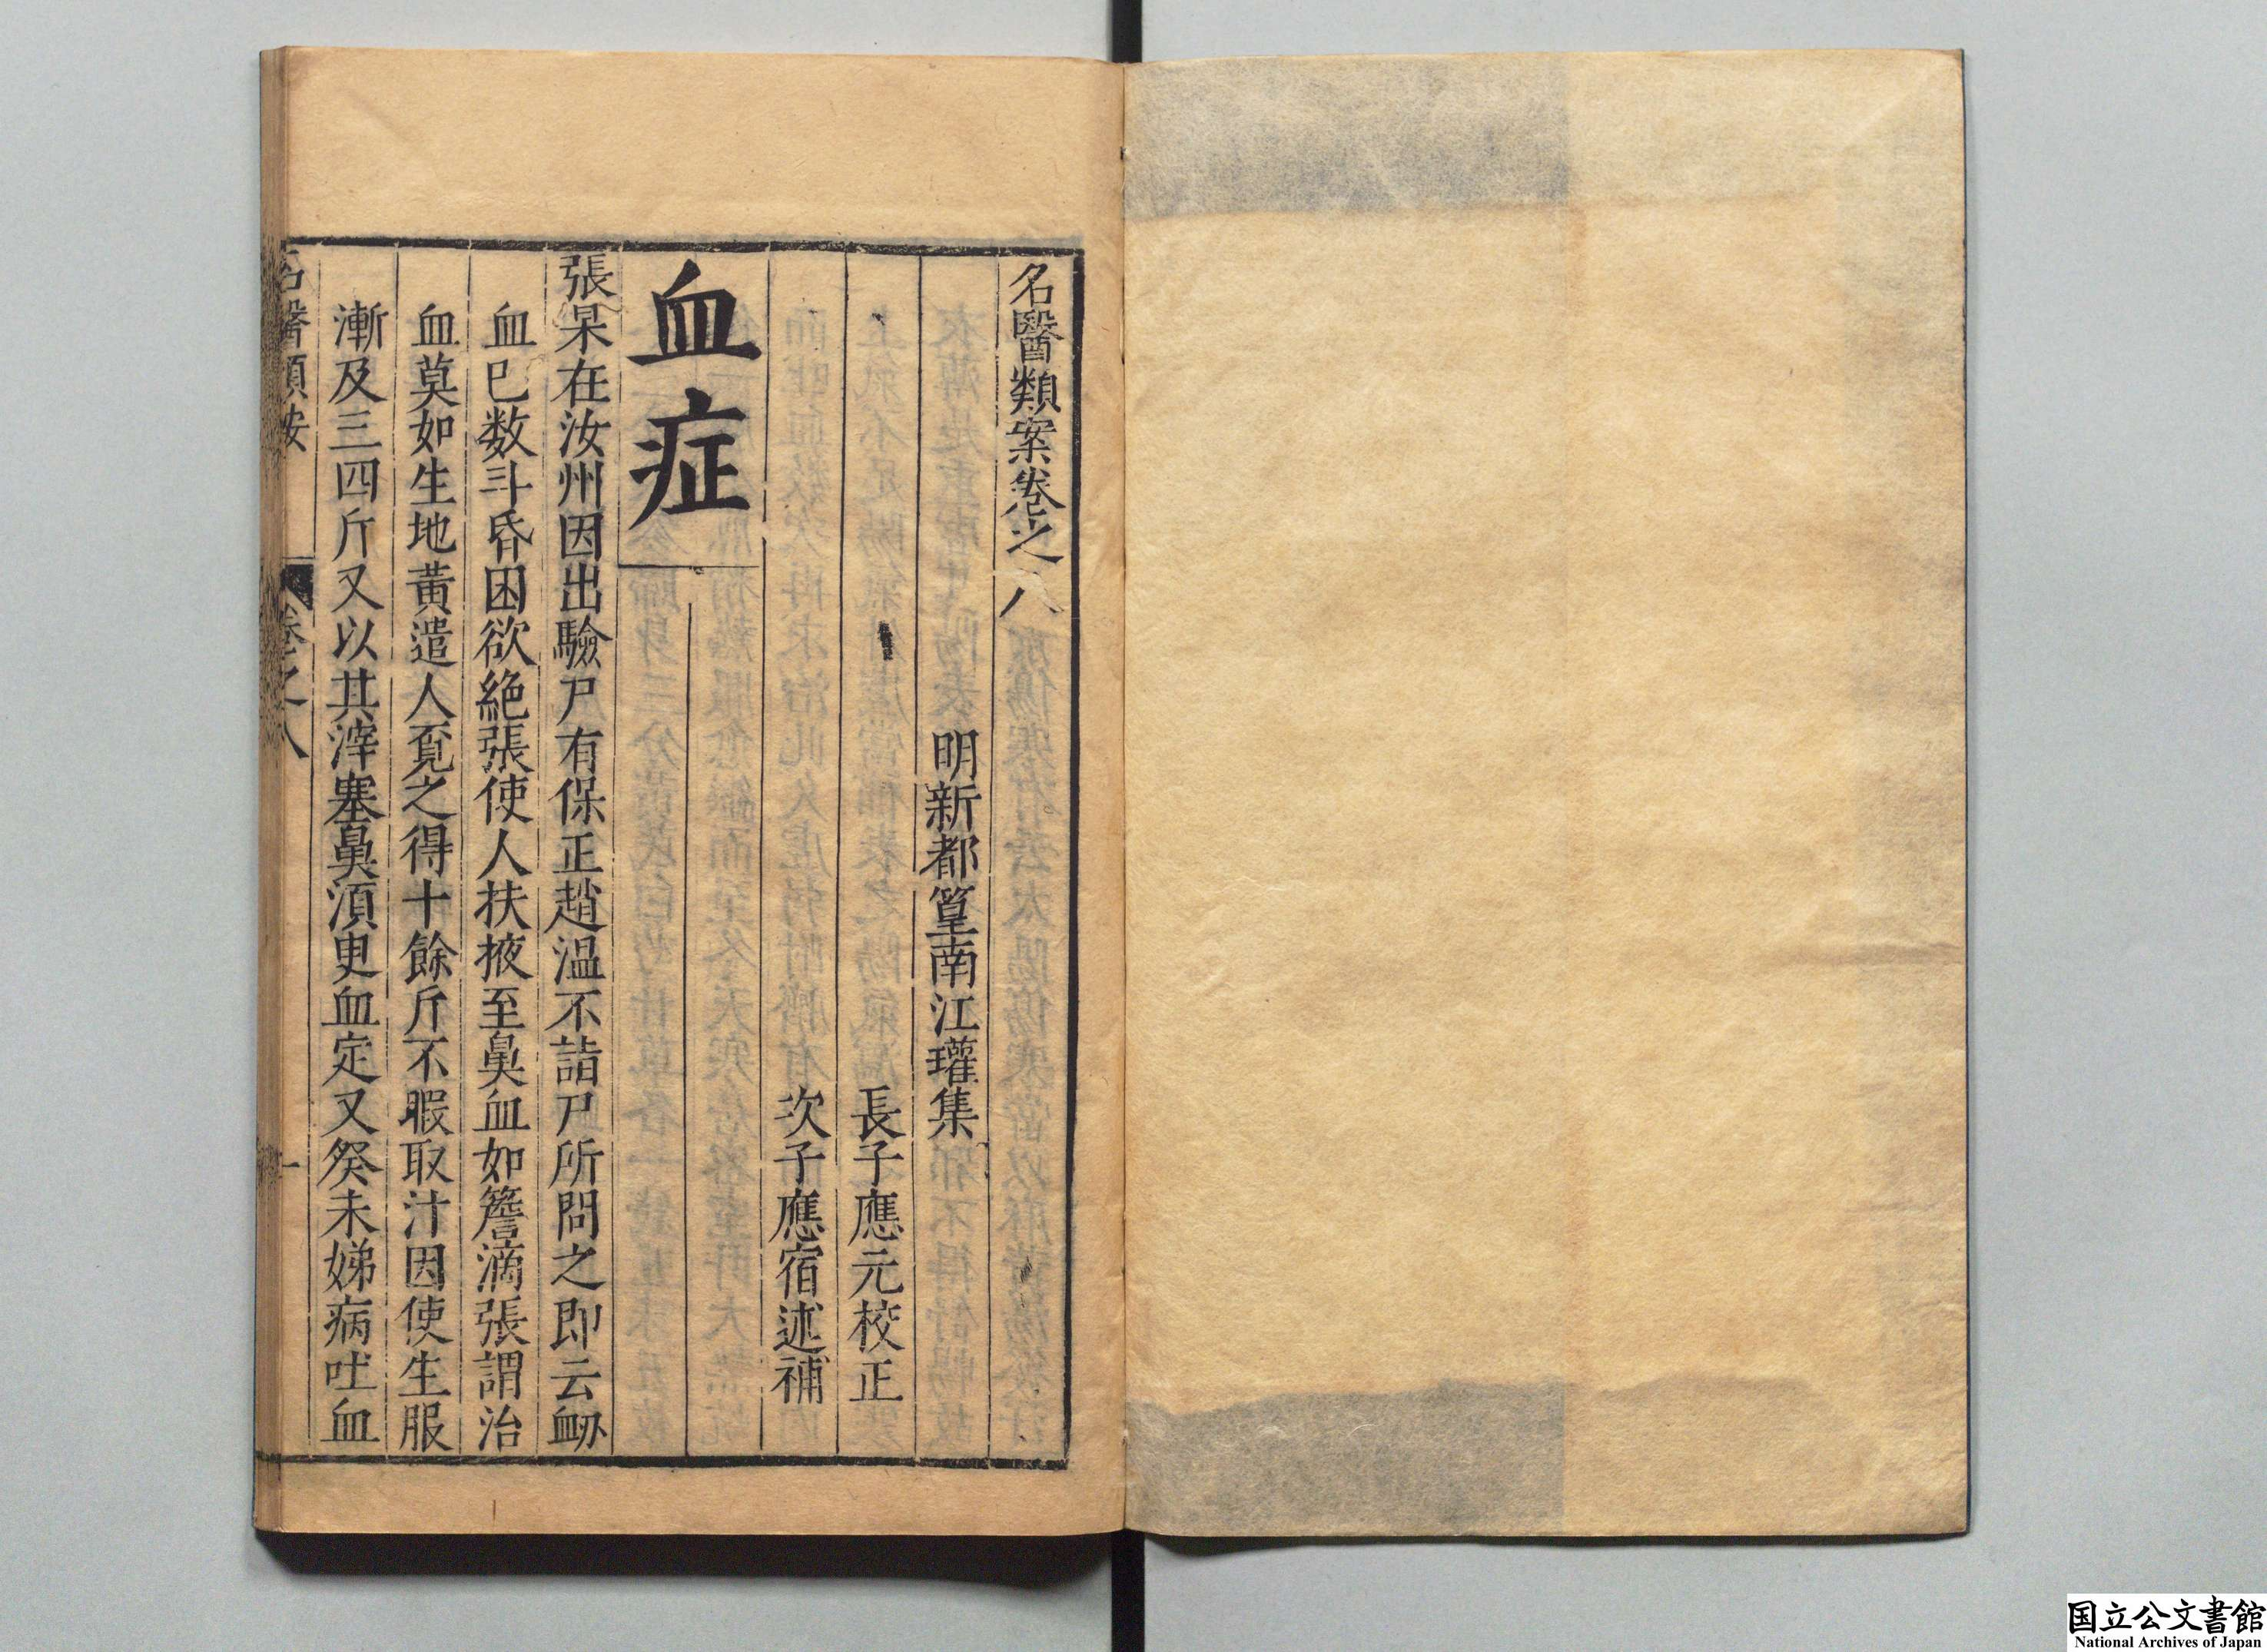 名醫類案卷之八
明新都篁南江瓘集
長子應元校正
次子應宿述補
血症
張杲在汝州因出驗尸有保正趙温不詣尸所問之即云衂
血已数斗昏困欲絶張使人扶掖至鼻血如簷滴張謂治
血莫如生地黄遣人覔之得十餘斤不暇取汁因使生服
漸及三四斤又以其滓塞鼻湏臾血定又癸未娣病吐血
名醫類案
卷之八
一
国立公文書館
National Archives of Japan